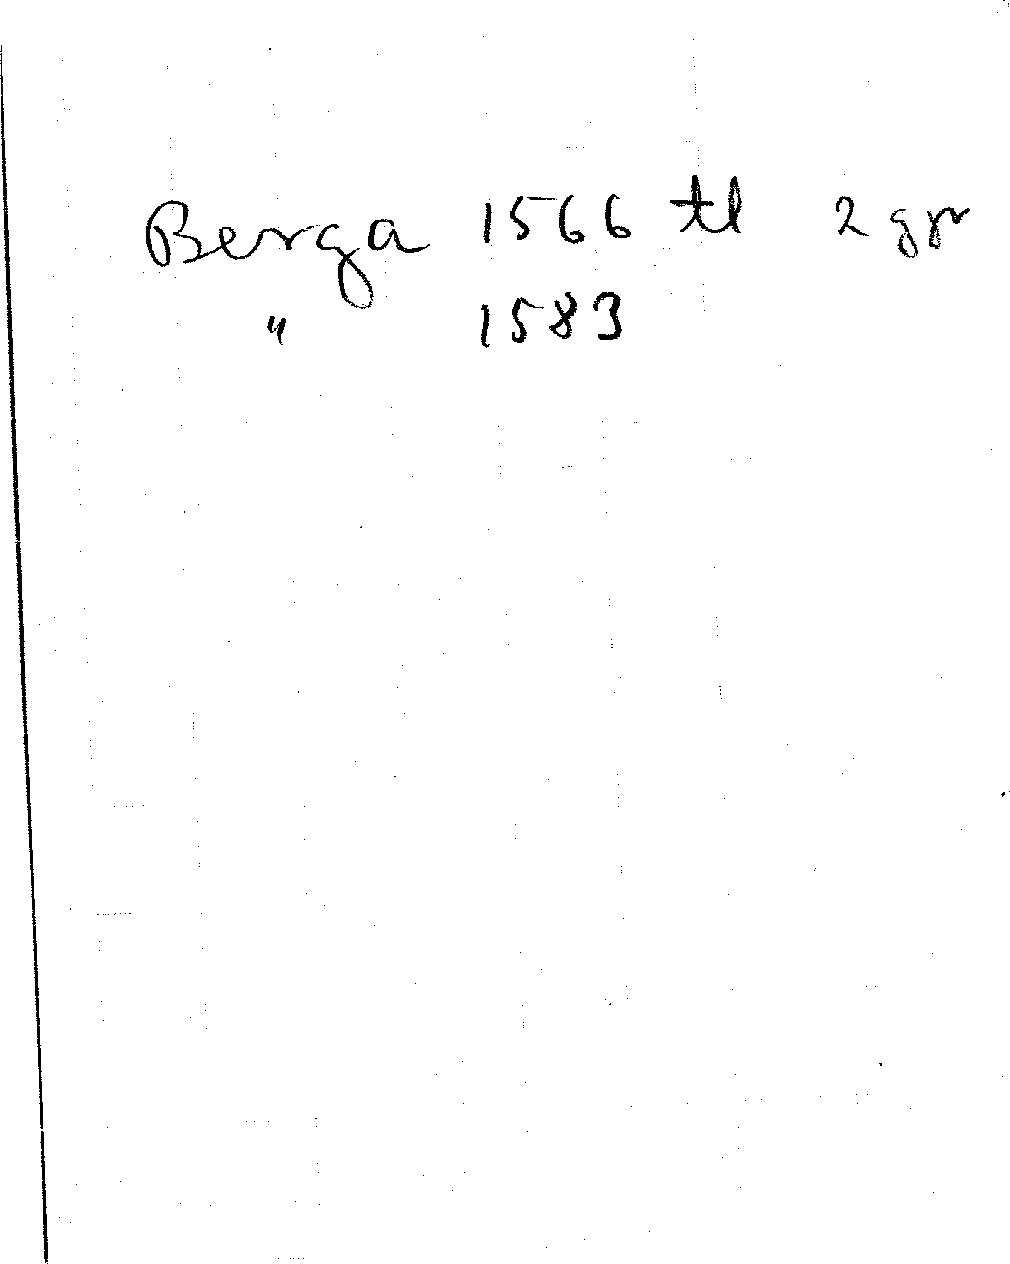 Berga 1566 tl 2 gr
" 1583